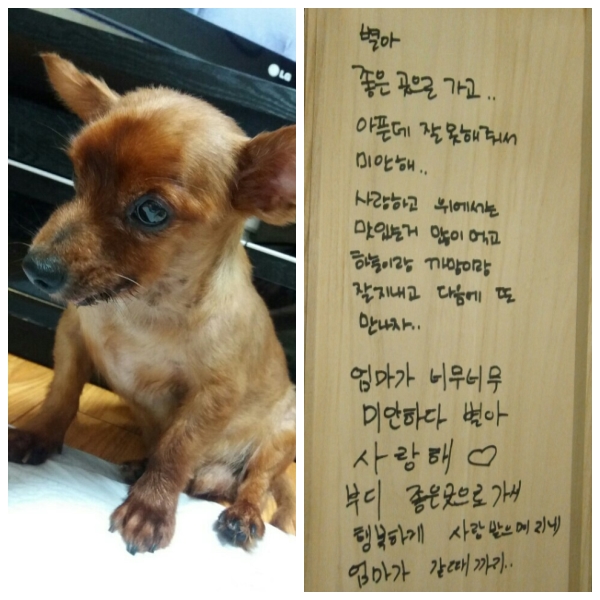 LG
별아
좋은 곳으로 가고..
아픈데 잘 못해줘서
미안해..
사랑하고 위에서는
맛있는거 많이 먹고
하늘이랑 까망이랑
잘지내고 다음에 또
만나자..
엄마가 너무너무
미안하다 별아
사랑해 ♡
부디 좋은곳으로 가서
행복하게 사랑받으며 지내
엄마가 갈때까지..